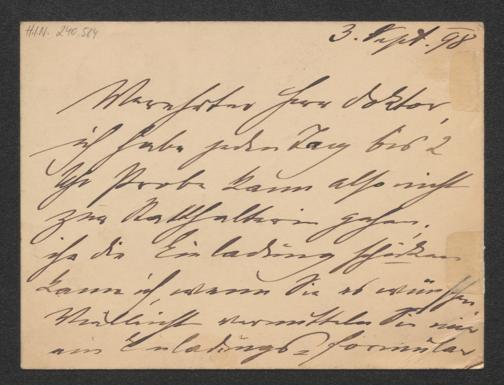 H.I.N. 240.564
3. Sept. 98
Verehrter Herr Doktor,
ich habe jeden Tag bis 2
Uhr Probe kann also nicht
zur Statthalterin gehen,
ihr die Einladung schicken
kann ich, wenn Sie es wünschen
Vielleicht vermitteln Sie mir
ein Einladungs=formular